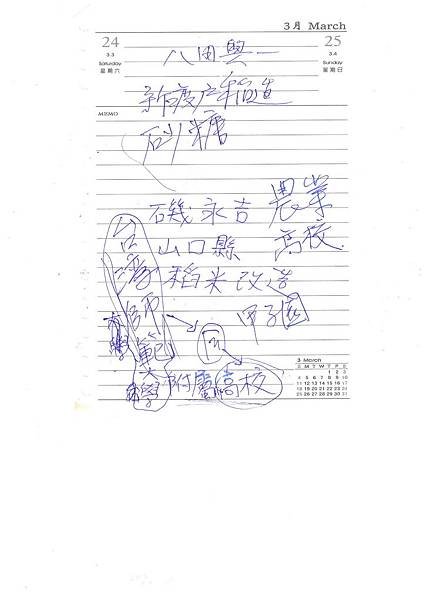 3月 March
24
3.3
Saturday
星期六
25
3.4
Sunday
星期日
八田與一
新渡戶稻造
MEMO
砂糖
磯永吉 農業
山口縣 高校
稻米改造
甲子園
台灣師範大學
附屬高校
3 March
S M T W T F S
1 2 3
4 5 6 7 8 9 10
11 12 13 14 15 16 17
18 19 20 21 22 23 24
25 26 27 28 29 30 31